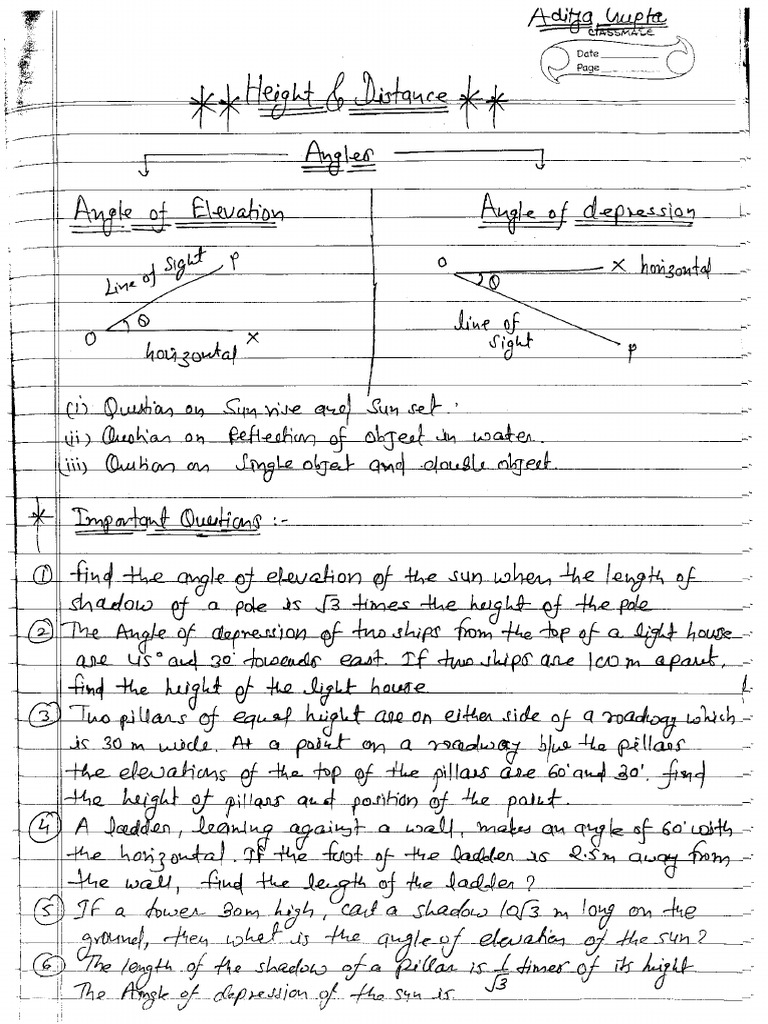 Aditya Gupta
CLASSMATE
Date
Page
** Height & Distance **
Angles
Angle of Elevation
Angle of depression
Line of Sight P
O θ X
horizontal
O θ X horizontal
line of
sight
P
(i) Question on Sun rise and Sun set.
(ii) Question on Reflection of object in water.
(iii) Qustion on Single object and double object.
* Important Questions :-
① find the angle of elevation of the sun when the length of
shadow of a pole is √3 times the height of the pole
② The Angle of depression of two ships from the top of a light house
are 45° and 30° towards east. If two ships are 100 m apart,
find the height of the light house.
③ Two pillars of equal height are on either side of a roadway which
is 30 m wide. At a point on a roadway b/w the pillars
the elevations of the top of the pillars are 60° and 30°. find
the height of pillars and position of the point.
④ A ladder, leaning against a wall, makes an angle of 60° with
the horizontal. If the foot of the ladder is 2.5m away from
the wall, find the length of the ladder?
⑤ If a tower 30m high, cast a shadow 10√3 m long on the
ground, then what is the angle of elevation of the sun?
⑥ The length of the shadow of a pillar is 1/√3 times of its height
The Angle of depression of the sun is.